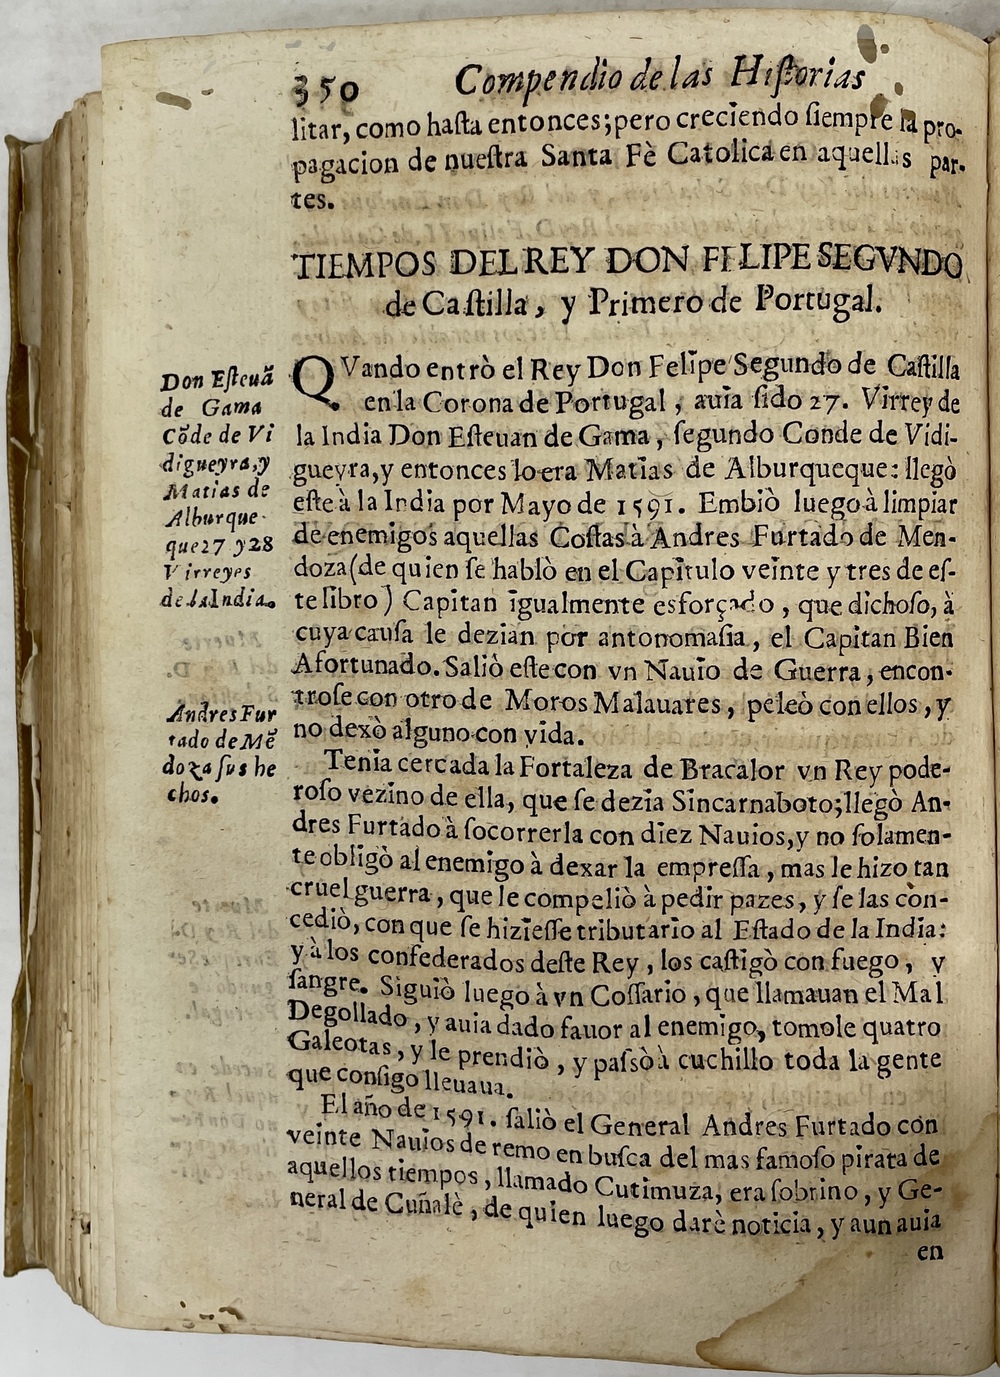 350 Compendio de las Hiſtorias
litar, como haſta entonces; pero creciendo ſiempre la pro-
pagacion de nueſtra Santa Fè Catolica en aquellas par-
tes.
TIEMPOS DEL REY DON FELIPE SEGVNDO
de Caſtilla, y Primero de Portugal.
Don Eſteuā
de Gama
Cōde de Vi
digueyra, y
Matias de
Alburque-
que 27 y 28
Virreyes
de la India.
QVando entrò el Rey Don Felipe Segundo de Caſtilla
en la Corona de Portugal, auia ſido 27. Virrey de
la India Don Eſteuan de Gama, ſegundo Conde de Vidi-
gueyra, y entonces lo era Matias de Alburqueque: llegò
eſte à la India por Mayo de 1591. Embiò luego à limpiar
de enemigos aquellas Coſtas à Andres Furtado de Men-
doza (de quien ſe hablò en el Capitulo veinte y tres de eſ-
te libro) Capitan igualmente esforçado, que dichoſo, à
cuya cauſa le dezian por antonomaſia, el Capitan Bien
Afortunado. Saliò eſte con vn Nauio de Guerra, encon-
troſe con otro de Moros Malauares, peleò con ellos, y
no dexò alguno con vida.
Andres Fur
tado de Mē
doza ſus he
chos.
Tenia cercada la Fortaleza de Bracalor vn Rey pode-
roſo vezino de ella, que ſe dezia Sincarnaboto; llegò An-
dres Furtado à ſocorrerla con diez Nauios, y no ſolamen-
te obligò al enemigo à dexar la empreſſa, mas le hizo tan
cruel guerra, que le compeliò à pedir pazes, y ſe las con-
cediò, con que ſe hizieſſe tributario al Eſtado de la India:
y à los confederados deſte Rey, los caſtigò con fuego, y
ſangre. Siguiò luego à vn Coſſario, que llamauan el Mal
Degollado, y auia dado fauor al enemigo, tomole quatro
Galeotas, y le prendiò, y paſsò à cuchillo toda la gente
que conſigo lleuaua.
El año de 1591. ſaliò el General Andres Furtado con
veinte Nauios de remo en buſca del mas famoſo pirata de
aquellos tiempos, llamado Cutimuza, era ſobrino, y Ge-
neral de Cuñalè, de quien luego darè noticia, y aun auia
en